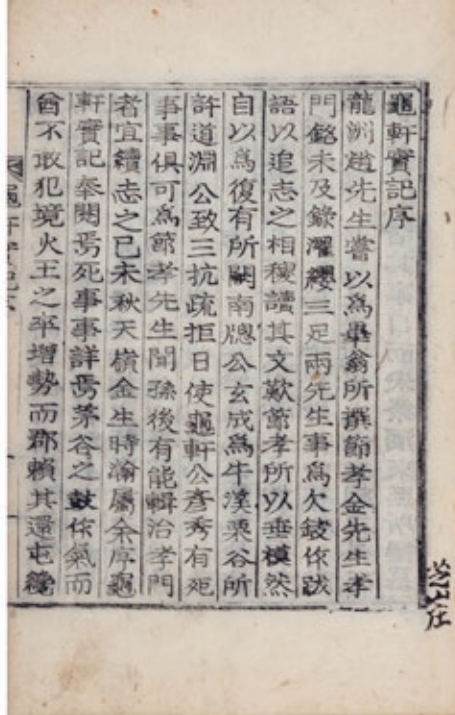 龜軒實記序
龍洲趙先生嘗以爲畢翁所撰節孝金先生孝
門銘未及錄濯纓三足兩先生事爲欠敍作跋
語以追志之相稷讀其文歎節孝所以垂模然
自以爲復有所闕南牕公玄成爲牛溪栗谷所
許道淵公致三抗疏拒日使龜軒公彥秀有死
事事俱可爲節孝先生聞孫後有能輯治孝門
者宜續志之己未秋天嶺金生時瀚屬余序龜
軒實記奉閱焉死事事詳焉茅谷之鼓作氣而
酋不敢犯境火王之卒增勢而郡賴其還屯
芝山庄